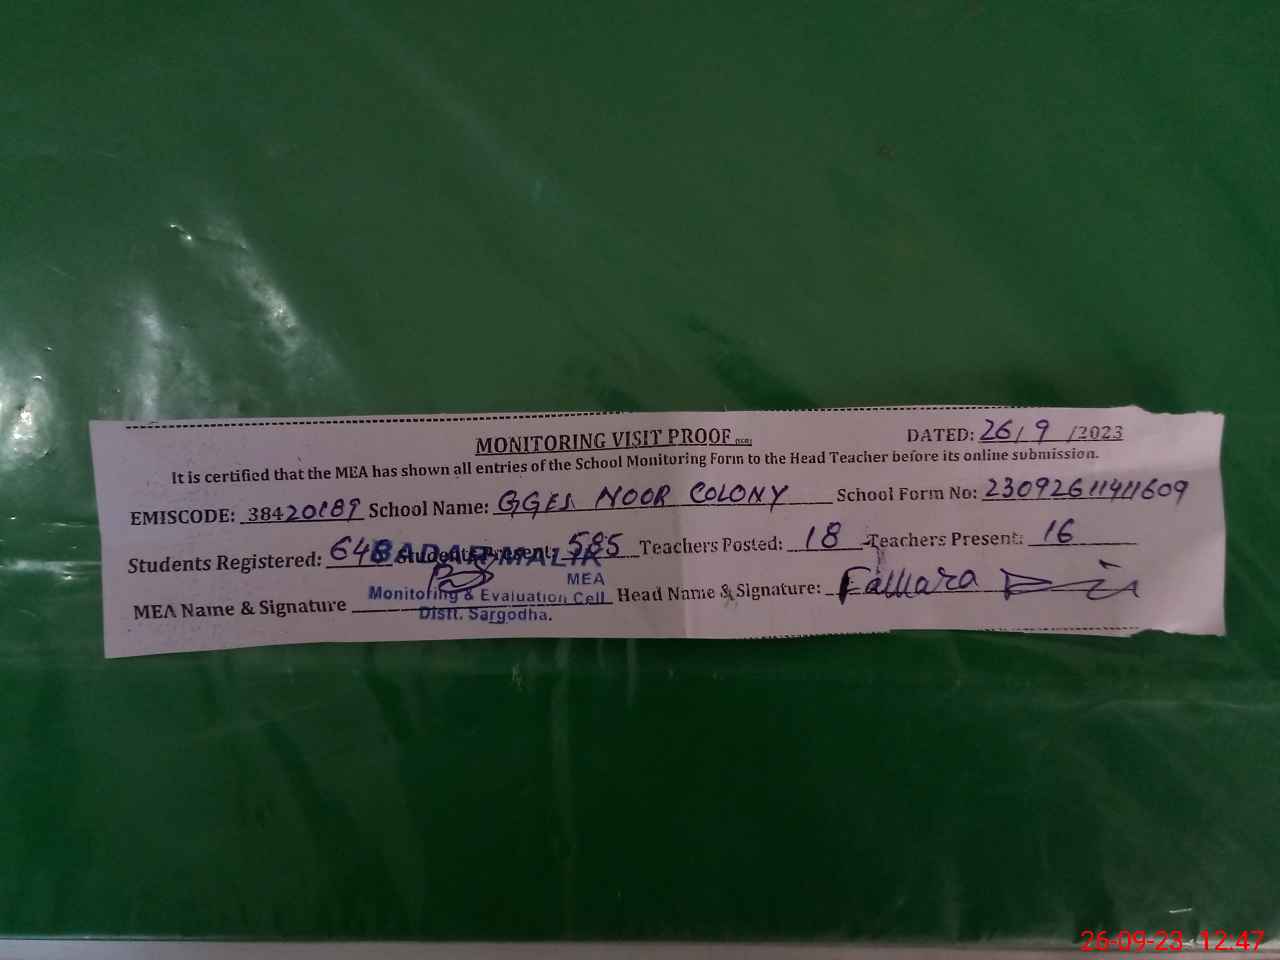 MONITORING VISIT PROOF
DATED: 26/9/2023
It is certified that the MEA has shown all entries of the School Monitoring Form to the Head Teacher before its online submission.
EMISCODE: 38420189 School Name: GGES NOOR COLONY School Form No: 23092611411609
Students Registered: 648 Students Present: 585 Teachers Posted: 18 Teachers Present: 16
BADAR MALIK
MEA
MEA Name & Signature Head Name & Signature:
Monitoring & Evaluation Cell
Distt. Sargodha.
26-09-23 12:47